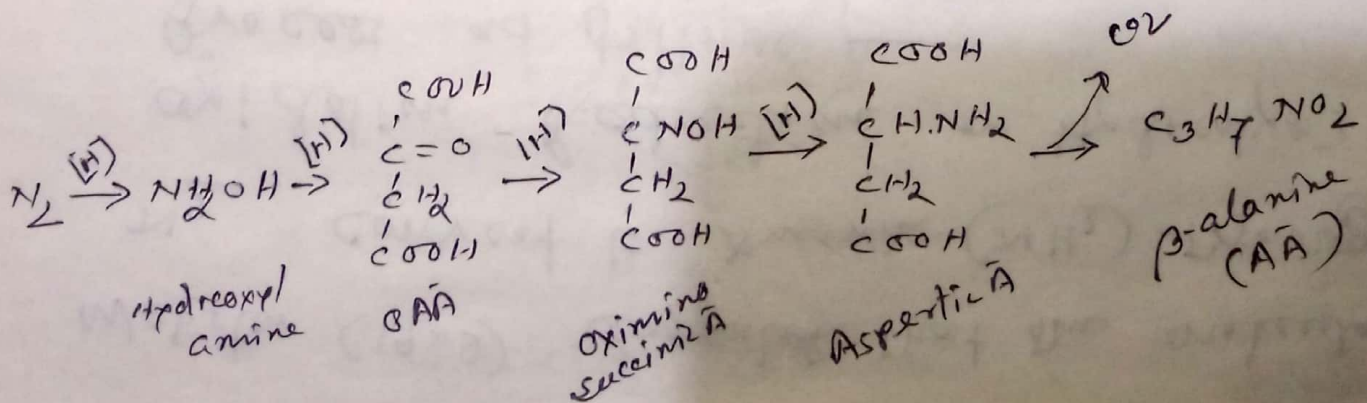 N2 [H]→ NH2OH [H]→
COOH
C=O
CH2
COOH
[H]→
COOH
CNOH
CH2
COOH
[H]→
COOH
CH.NH2
CH2
COOH
→ CO2
C3H7NO2
Hydroxyl
amine
OAĀ
Oximino
succinic Ā
Aspertic Ā
β-alanine
(AĀ)